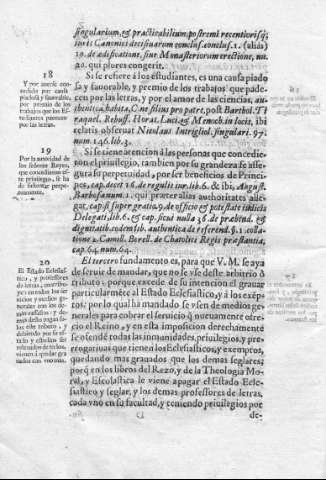 singularium, & practicabilium postremi recentiorisq;
iuris Canonici decisiuarum conclus. conclus. 1. (alids)
19. de ædificatione, siue Monasteriorum erectione, nu.
20. qui plores congerit.
18
Y por auerse con-
cedido por causa
piadosa y fauorable,
por premio de los
trabajos que los Es-
tudiantes passan
por las letras.
Si se refiere à los estudiantes, es vna causa piado
sa y fauorable, y premio de los trabajos que pade-
cen por las letras, y por el amor de las ciencias, au-
thentica habita, C. ne filius pro patre, post Barthol. Ti
raquel. Rebuff. Horat. Luci. & Menoch. in locis, ibi
relatis obseruat Nicolaus Intrigliol. singulari. 97.
num. 146. lib. 3.
19
Por la autoridad de
los señores Reyes,
que concedieron es-
te priuilegio, se ha
de sustentar perpe-
tuamente.
Si se tiene atencion à las personas que concedie-
ron el priuilegio, tambien por su grandeza se asse-
gura su perpetuidad, por ser beneficios de Princi-
pes, cap. decet 16. de regulis iur. lib. 6. & ibi, August.
Barbosanum 1. qui præter alias authoritates alle-
gat, cap. si super gratia 9. de officio & potestate iudicis
Delegati, lib. 6. & cap. sicut nulla 36. de præbend. &
dignitatib. eodem lib. authentica de referend. §. 1. colla-
tione 2. Camill. Borell. de Chatolici Regis præstantia,
cap. 64. num. 64.
20
El Estado Eclesias-
tico, y professores
de letras,
El tercero fundamento es, para que V. M. se aya
de seruir de mandar, que no se vse deste arbitrio ò
tributo: porque excede de su intencion el grauar
particularmẽte al Estado Eclesiastico, y à los exẽp
tos: por lo qual ha mandado se vse de medios ge-
nerales para cobrar el seruicio q̃ nueuamente ofre-
cio el Reino, y en esta imposicion derechamente
se ofẽnde todas las inmunidades, priuilegios, y pre-
rogatiuas que tienen los Eclesiasticos, y exemptos,
quedando mas grauados que los demas seglares;
porq̃ en los libros del Rezo, y de la Theologia Mo-
ral, y Escolastica le viene apagar el Estado Ecle-
siastico y seglar, y los demas professores de letras,
cada vno en su facultad, y teniendo priuilegios por
D
de-